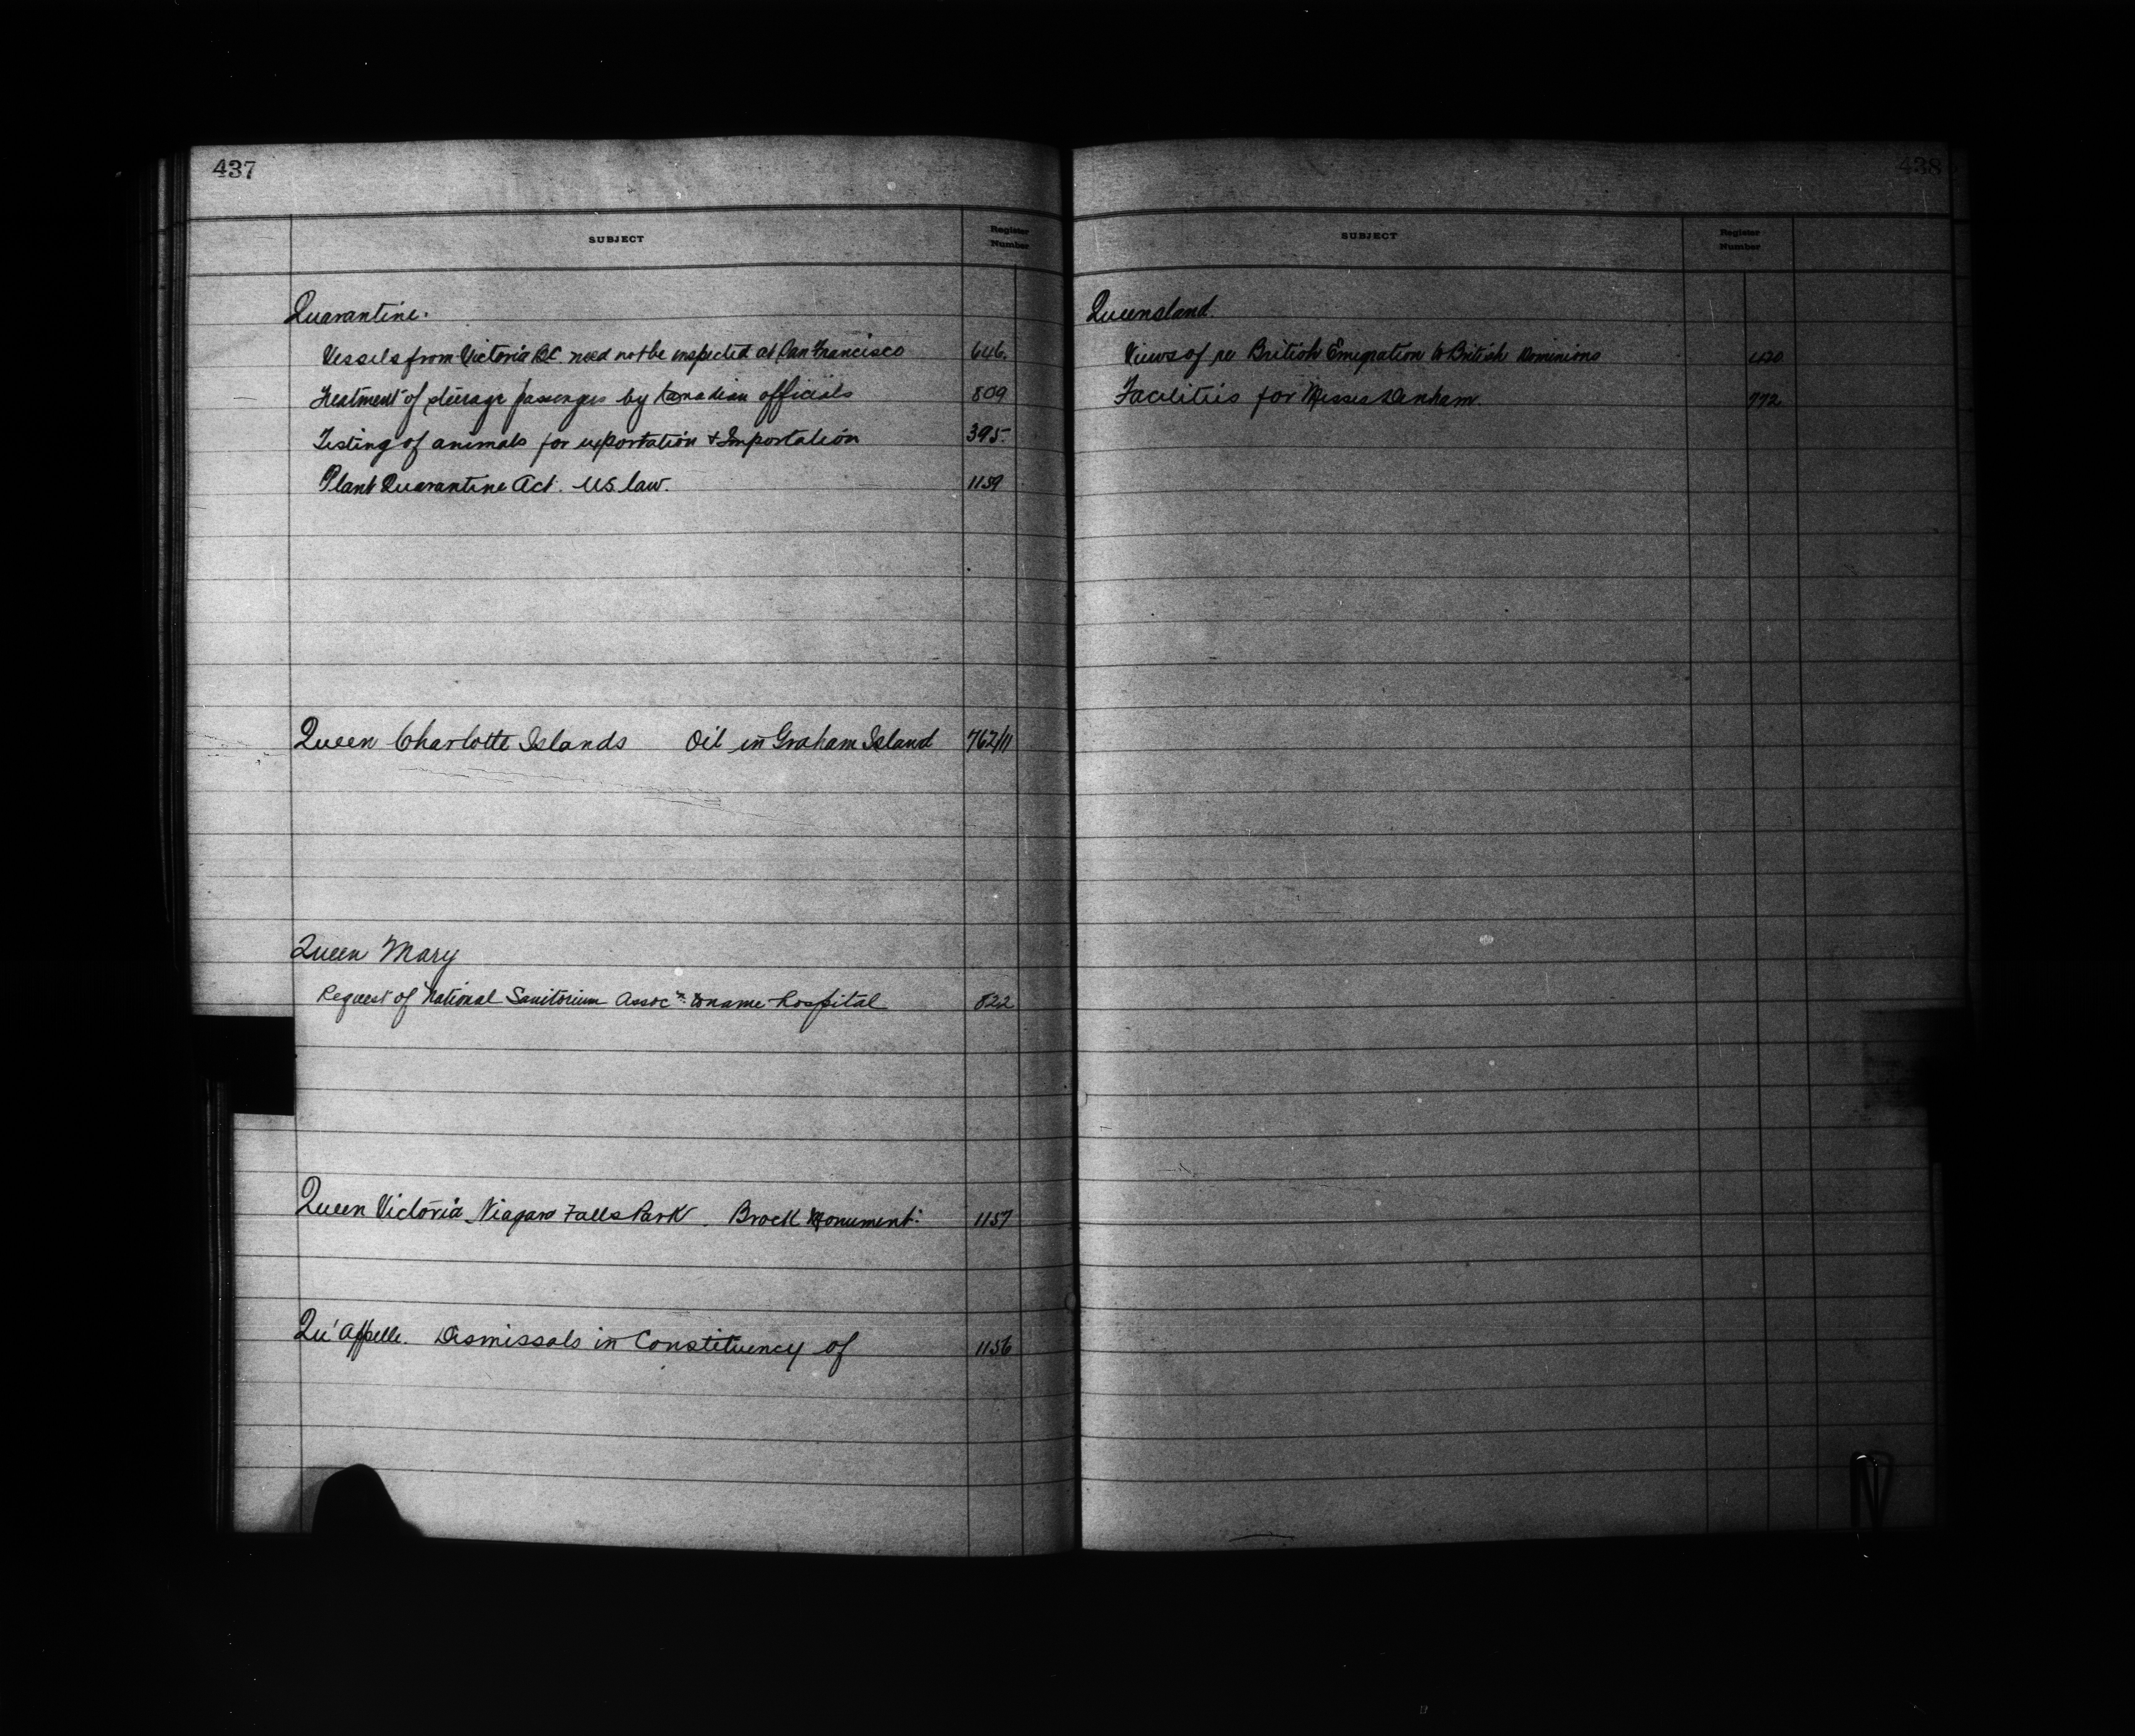 437
SUBJECT Register Number
Quarantine.
Vessels from Victoria B.C. need not be inspected at San Francisco 646.
Treatment of steerage passengers by Canadian officials 809
Testing of animals for exportation & Importation 395.
Plant Quarantine Act. U.S. law. 1159
Queen Charlotte Islands Oil in Graham Island 762/11
Queen Mary
Request of National Sanitorium Assocn. to name hospital 822
Queen Victoria Niagara Falls Park. Brock Monument. 1157
Qu'Appelle. Dismissals in Constituency of 1156
438
SUBJECT Register Number
Queensland.
Views of re British Emigration to British Dominions 420
Facilities for Misses Denham. 772